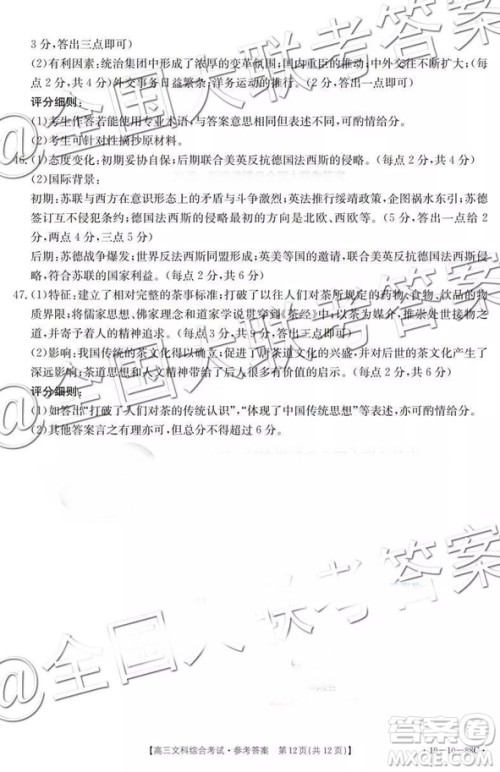 3 分，答出三点即可)
(2)有利因素：统治集团中形成了浓厚的变革氛围；国内市场的推动；中外交往不断扩大；(每
点 2 分，共 4 分)外交事务日益繁杂；洋务运动的推行。(每点 1 分，共 2 分)
评分细则：
(1)考生作答若能使用专业术语，或答案与此表述不一致但意思相同，可酌情给分。
(2)考生可针对性摘抄原材料。
46. (1)态度变化：初期妥协自保；后期联合美英反抗德国法西斯的侵略。(每点 2 分，共 4 分)
(2)国际背景：
初期：苏联与西方在意识形态的矛盾与斗争激烈；英法推行绥靖政策，企图祸水东引；苏德
互不侵犯；德国法西斯的侵略方向主要是北欧、西欧等。(每点 2
分，两点 4 分，三点 5 分)
后期：苏德战争爆发；世界反法西斯同盟建立；英美等国的邀请，联合反抗德国法西斯侵略
符合苏联的国家利益。(每点 2 分，共 6 分)
47. (1)特征：建立了相对完整的茶事标准；打破了人们对茶所规定的药物、食物、饮品的物
质界限；将儒家、佛家理念和道家学说贯穿到《茶经》中；以茶为媒介，提出了茶道之
道，并寄予着人的精神追求。(每点 3 分，共 9 分)
(2)影响：我国传统的茶文化得以升华；促进了唐代茶道文化的兴盛，并对后世的茶文化产生了
深远影响；茶道思想和人文精神带给了人们很多有价值的启示。(每点 2 分，共 6 分)
评分细则：
(1)如答出“打破了人们对茶的传统认识”，“体现了中国传统思想”等表述，可酌情给分。
(2)其他答案言之有理亦可，但总分不得超过 6 分。
@全国大联考答案
@全国大联考答案
@全国大联考答案
【高三文科综合考试·参考答案 第 12 页(共 12 页)】
·19-10-88C·
答案圈
MXQE.COM